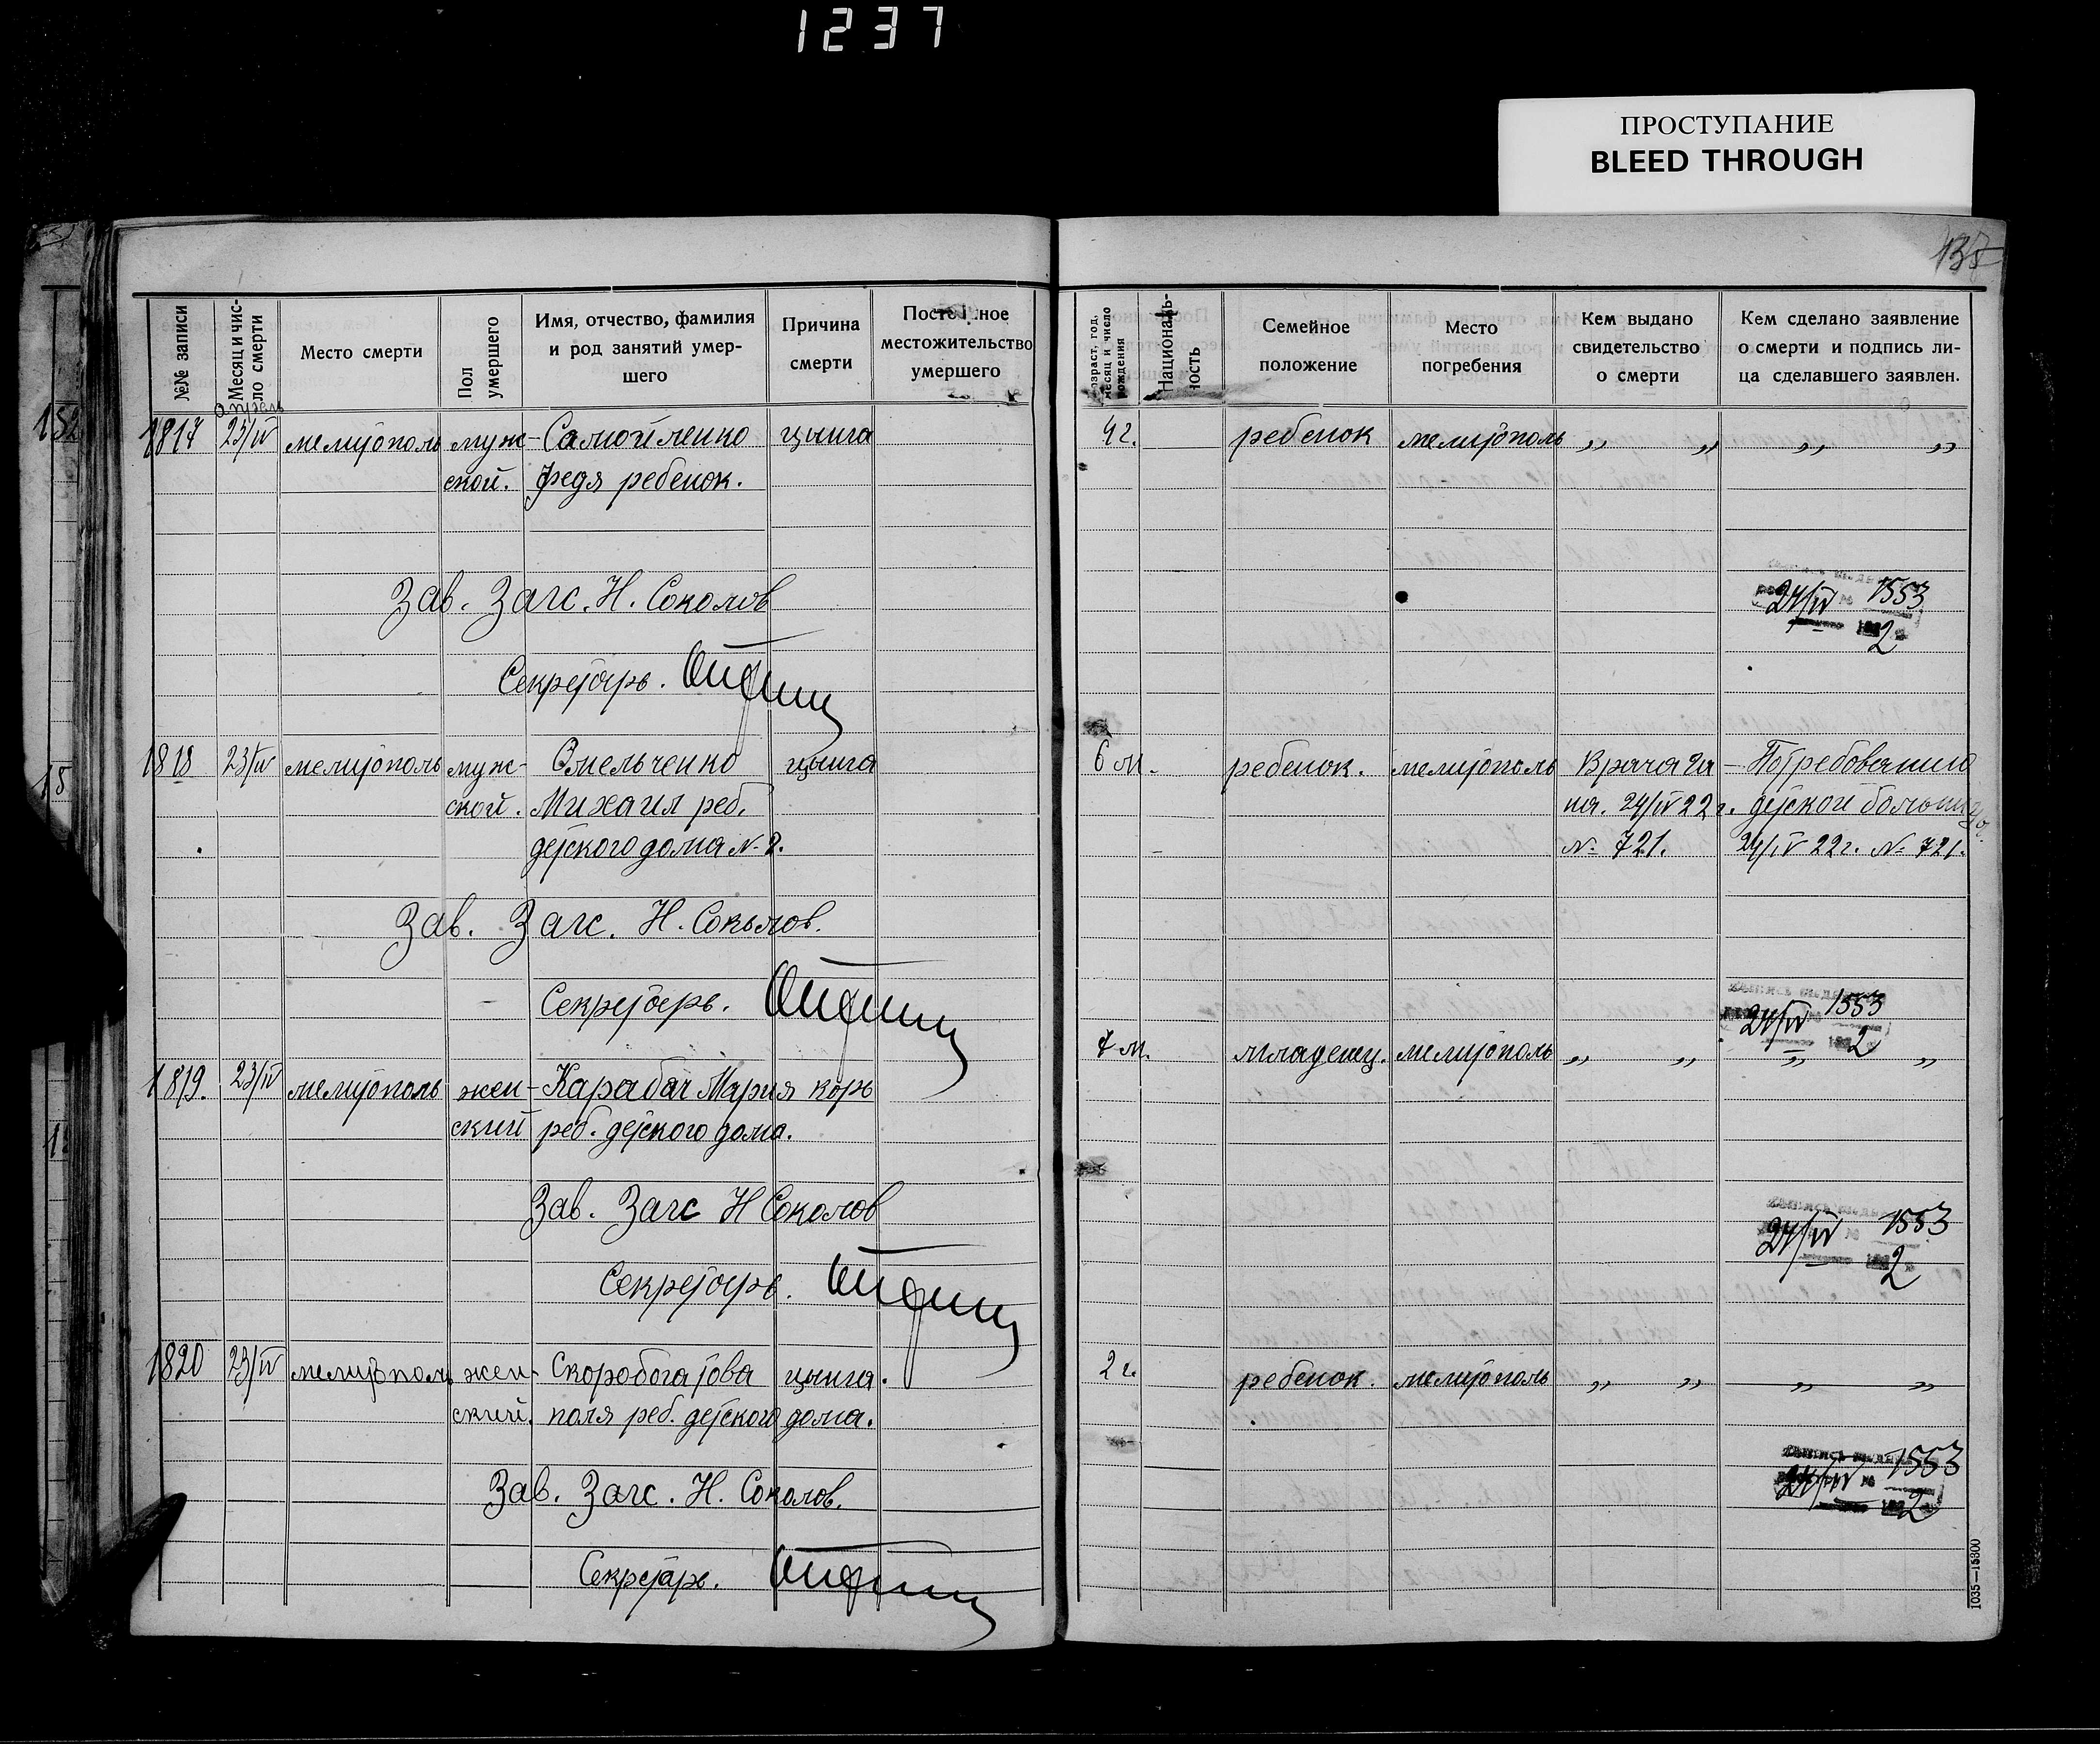 1237
ПРОСТУПАНИЕ
BLEED THROUGH
№№ записи
Месяц и чис-
ло смерти
Место смерти
Пол
умершего
Имя, отчество, фамилия
и род занятий умер-
шего
Причина
смерти
местожительство
умершего
месяц и число
рождения
Националь-
ность
Семейное
положение
Место
погребения
Кем выдано
свидетельство
о смерти
Кем сделано заявление
о смерти и подпись ли-
ца сделавшего заявлен.
апрель
1817 23/IV мелитополь муж- Самойленко цынга 4 г. ребенок мелитополь „ „ „ „
ской. Федя ребенок.
Зав. Загс. Н. Соколов
24/IV 1553
2
Секретарь.
1818 23/IV мелитополь муж- Омельченко цынга 6 м. ребенок. мелитополь Врача Га- По требованию
ской. Михаил реб. на. 24/IV 22 г. детской больницы
детского дома № 2. № 721. 24/IV 22 г. № 721.
Зав. Загс. Н. Соколов.
Секретарь.
24/IV 1553
2
1819. 23/IV мелитополь жен- Карабач Мария корь 7 м. младенец. мелитополь „ „ „ „
ский реб. детского дома.
Зав. Загс Н Соколов
24/IV 1553
2
Секретарь.
1820 23/IV мелитополь жен- Скоробогатова цынга. 2 г. ребенок. мелитополь „ „ „ „
ский. поля реб. детского дома.
Зав. Загс. Н. Соколов.
24/IV 1553
2
Секретарь.
1035—15300